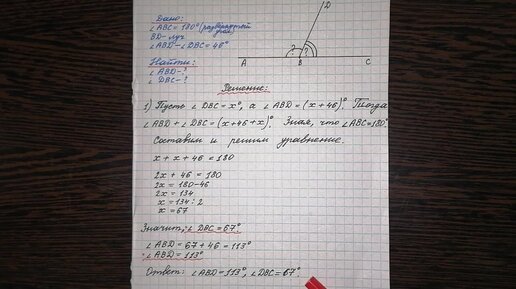 Дано:
∠ABC = 180° (развернутый
угол)
BD - луч
∠ABD - ∠DBC = 46°
Найти:
∠ABD - ?
∠DBC - ?
D
? ?
A B C
Решение:
1) Пусть ∠DBC = x°, а ∠ABD = (x+46)°. Тогда
∠ABD + ∠DBC = (x+46+x)°. Зная, что ∠ABC=180°
Составим и решим уравнение.
x + x + 46 = 180
2x + 46 = 180
2x = 180-46
2x = 134
x = 134 : 2
x = 67
Значит, ∠DBC = 67°
∠ABD = 67 + 46 = 113°
∠ABD = 113°
Ответ: ∠ABD = 113°, ∠DBC = 67°.